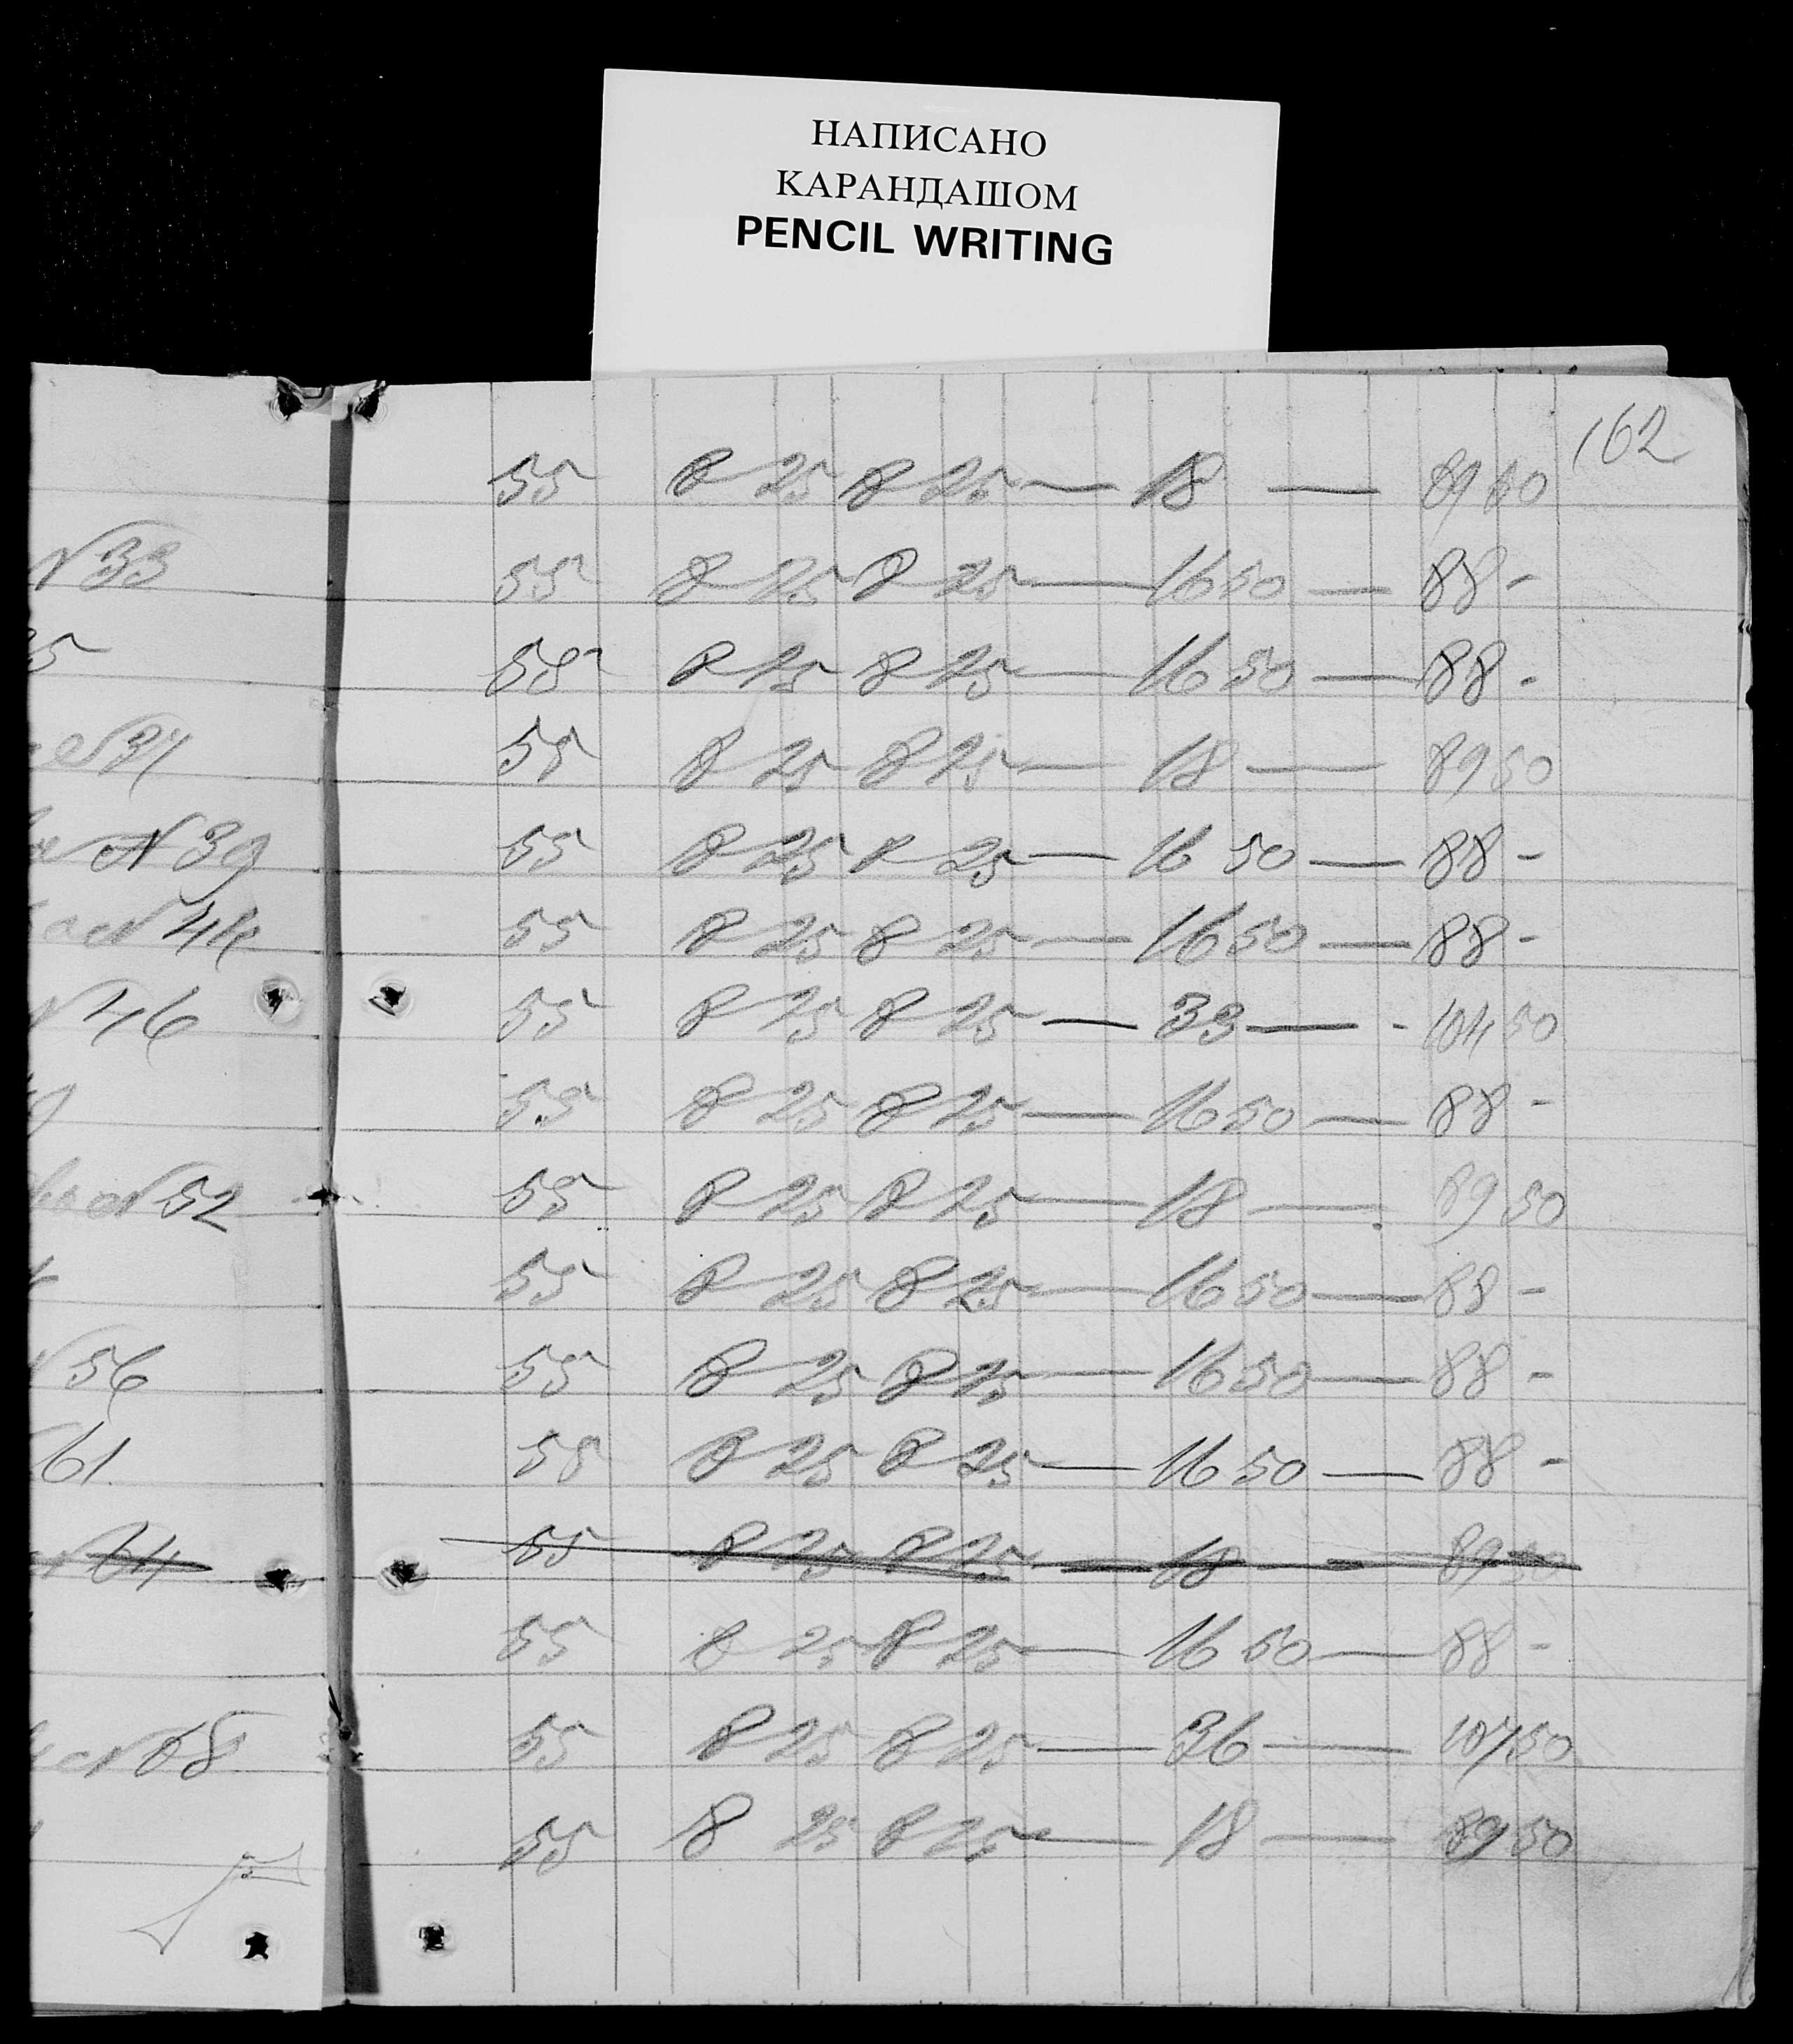 НАПИСАНО
КАРАНДАШОМ
PENCIL WRITING
162
55 8 25 8 25 — 18 — 89 50
N 33 55 8 25 8 25 — 16 50 — 88 -
35 55 8 25 8 25 — 16 50 — 88 -
N 37 55 8 25 8 25 — 18 — 89 50
N 39 55 8 25 8 25 — 16 50 — 88 -
N 44 55 8 25 8 25 — 16 50 — 88 -
N 46 55 8 25 8 25 — 33 — - 104 50
55 8 25 8 25 — 16 50 — 88 -
N 52 55 8 25 8 25 — 18 — 89 50
55 8 25 8 25 — 16 50 — 88 -
N 56 55 8 25 8 25 — 16 50 — 88 -
61 55 8 25 8 25 — 16 50 — 88 -
N 64 55 8 25 8 25 — 18 — 89 50
55 8 25 8 25 — 16 50 — 88 -
N 68 55 8 25 8 25 — 36 — 107 50
55 8 25 8 25 — 18 — 89 50